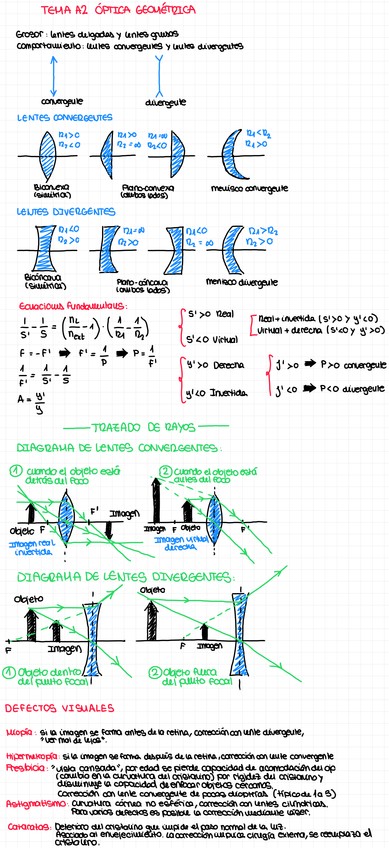 TEMA A2 ÓPTICA GEOMÉTRICA
Grosor: lentes delgadas y lentes gruesas
Comportamiento: lentes convergentes y lentes divergentes
convergente divergente
LENTES CONVERGENTES
r1>0 r2<0
r1>0 r2=∞
r1=∞ r2<0
r1<r2 r1>0
Biconvexa (simétrica)
Plano-convexa (ambos lados)
menisco convergente
LENTES DIVERGENTES
r1<0 r2>0
r1=∞ r2>0
r1<0 r2=∞
r1>r2 r2>0
Bicóncava (simétrica)
Plano-cóncava (ambos lados)
menisco divergente
Ecuaciones fundamentales:
1/s' - 1/s = (nL/next - 1) · (1/r1 - 1/r2)
F = -F' ➡ F' = 1/P ➡ P = 1/f'
1/F' = 1/s' - 1/s
A = y'/y
s'>0 Real
s'<0 Virtual
Real + invertida (s'>0 y y'<0)
Virtual + derecha (s'<0 y y'>0)
y'>0 Derecha
y'<0 Invertida
f'>0 ➡ P>0 convergente
f'<0 ➡ P<0 divergente
TRAZADO DE RAYOS
DIAGRAMA DE LENTES CONVERGENTES:
① Cuando el objeto está detrás del foco
② Cuando el objeto está antes del foco
Objeto F F' Imagen
Imagen real invertida
Imagen F Objeto F'
Imagen virtual derecha
DIAGRAMA DE LENTES DIVERGENTES:
Objeto
F Imagen
① Objeto dentro del punto focal
Objeto
F Imagen
② Objeto fuera del punto focal
DEFECTOS VISUALES
Miopía: si la imagen se forma antes de la retina, corrección con lente divergente,
"ver mal de lejos".
Hipermetropía: si la imagen se forma después de la retina, corrección con lente convergente
Presbicia: "vista cansada", por edad se pierde capacidad de acomodación del ojo
(cambio en la curvatura del cristalino) por rigidez del cristalino y
disminuye la capacidad de enfocar objetos cercanos.
Corrección con lente convergente de pocas dioptrías (típico de 1 a 3)
Astigmatismo: curvatura córnea no esférica, corrección con lentes cilíndricas.
Para varios defectos es posible la corrección mediante láser.
Cataratas: Deterioro del cristalino que impide el paso normal de la luz.
Asociado al envejecimiento. La corrección implica cirugía externa, se reemplaza el
cristalino.